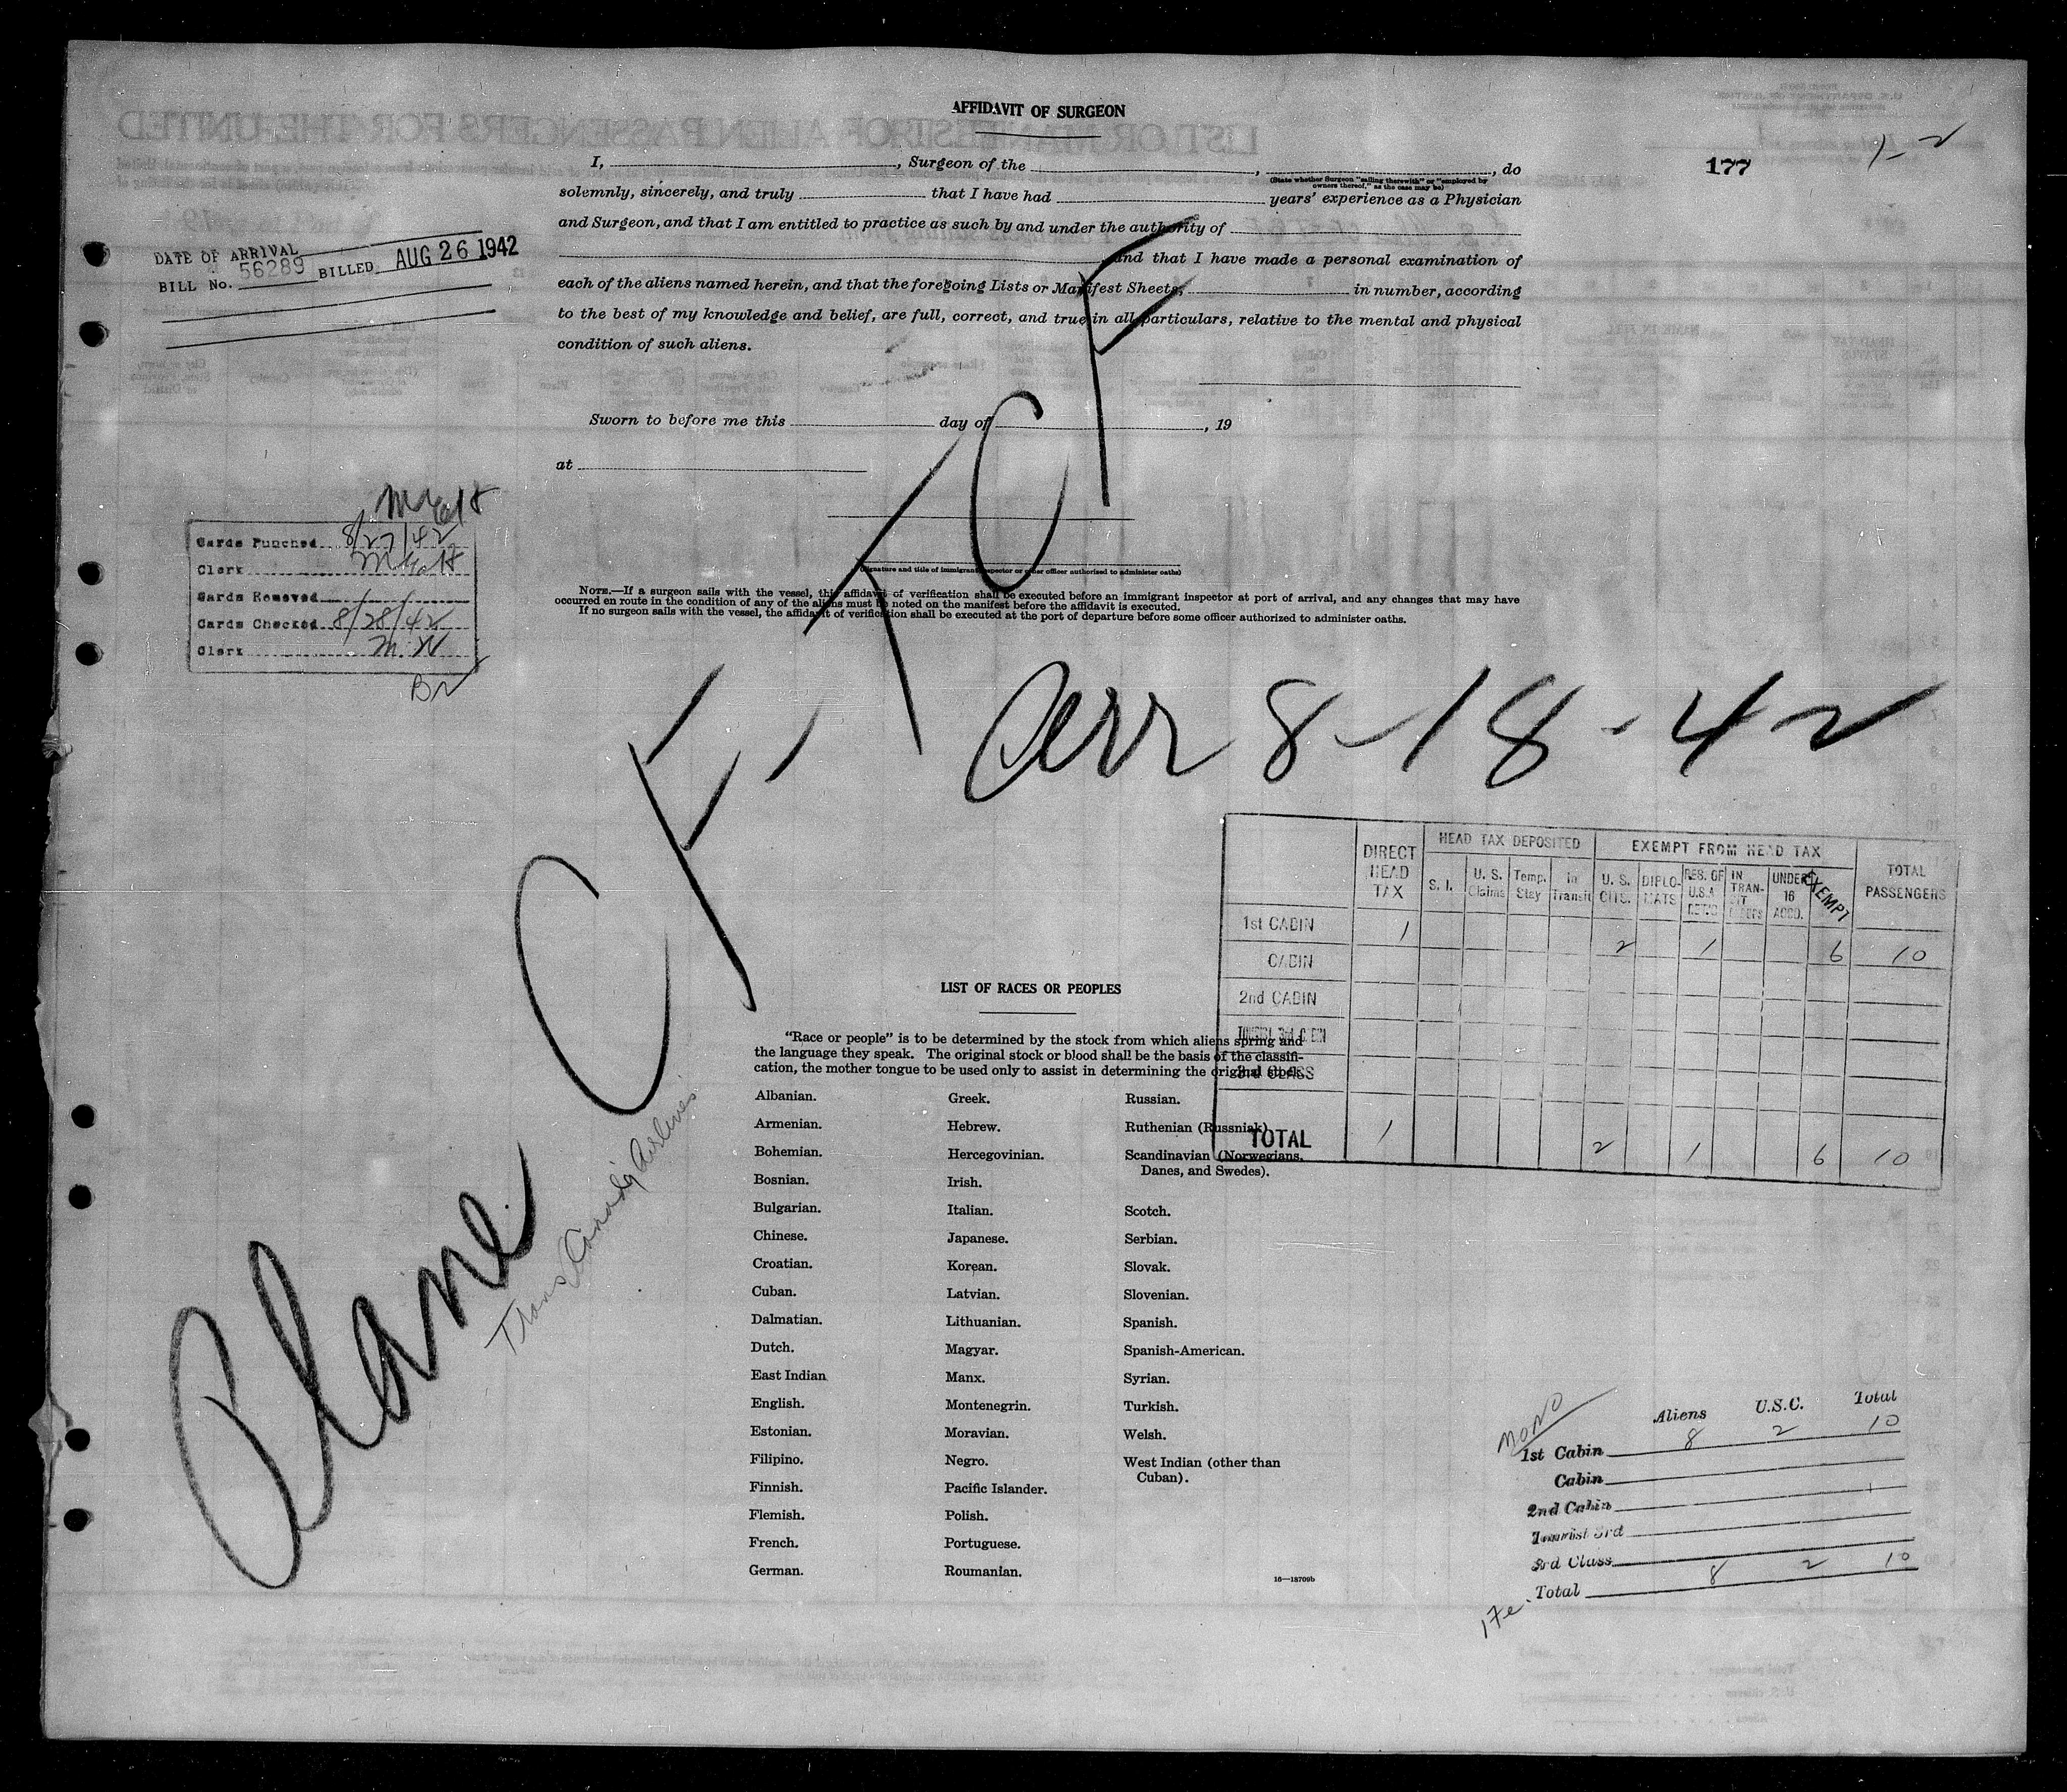 AFFIDAVIT OF SURGEON
177
1-2
I, , Surgeon of the , , do
(State whether Surgeon "sailing therewith" or "employed by
owners thereof," as the case may be)
solemnly, sincerely, and truly that I have had years' experience as a Physician
and Surgeon, and that I am entitled to practice as such by and under the authority of
and that I have made a personal examination of
each of the aliens named herein, and that the foregoing Lists or Manifest Sheets, in number, according
to the best of my knowledge and belief, are full, correct, and true in all particulars, relative to the mental and physical
condition of such aliens.
DATE OF ARRIVAL
BILL No. 56289 BILLED AUG 26 1942
Sworn to before me this day of , 19
at
(Signature and title of immigrant inspector or other officer authorized to administer oaths)
NOTE.—If a surgeon sails with the vessel, this affidavit of verification shall be executed before an immigrant inspector at port of arrival, and any changes that may have
occurred en route in the condition of any of the aliens must be noted on the manifest before the affidavit is executed.
If no surgeon sails with the vessel, the affidavit of verification shall be executed at the port of departure before some officer authorized to administer oaths.
Cards Punched 8/27/42
Clerk
Cards Removed
Cards Checked 8/28/42
Clerk M. W
Plane CF, TCF
Trans Canada Airlines
arr 8-18-42
DIRECT HEAD TAX
HEAD TAX DEPOSITED
EXEMPT FROM HEAD TAX
TOTAL PASSENGERS
S. I. U. S. Claims Temp. Stay In Transit U. S. CITS. DIPLO-MATS RES. OF U.S.A. RET'G IN TRAN-SIT UNDER 16 ACCD. EXEMPT
1st CABIN 1 2 1 6 10
CABIN
2nd CABIN
3rd CLASS
TOTAL 1 2 1 6 10
LIST OF RACES OR PEOPLES
"Race or people" is to be determined by the stock from which aliens spring and
the language they speak. The original stock or blood shall be the basis of the classifi-
cation, the mother tongue to be used only to assist in determining the original stock.
Albanian.
Armenian.
Bohemian.
Bosnian.
Bulgarian.
Chinese.
Croatian.
Cuban.
Dalmatian.
Dutch.
East Indian
English.
Estonian.
Filipino.
Finnish.
Flemish.
French.
German.
Greek.
Hebrew.
Hercegovinian.
Irish.
Italian.
Japanese.
Korean.
Latvian.
Lithuanian.
Magyar.
Manx.
Montenegrin.
Moravian.
Negro.
Pacific Islander.
Polish.
Portuguese.
Roumanian.
Russian.
Ruthenian (Russniak).
Scandinavian (Norwegians,
Danes, and Swedes).
Scotch.
Serbian.
Slovak.
Slovenian.
Spanish.
Spanish-American.
Syrian.
Turkish.
Welsh.
West Indian (other than
Cuban).
16—18709b
Aliens U.S.C. Total
1st Cabin 8 2 10
Cabin
2nd Cabin
Tourist 3rd
3rd Class
Total 8 2 10